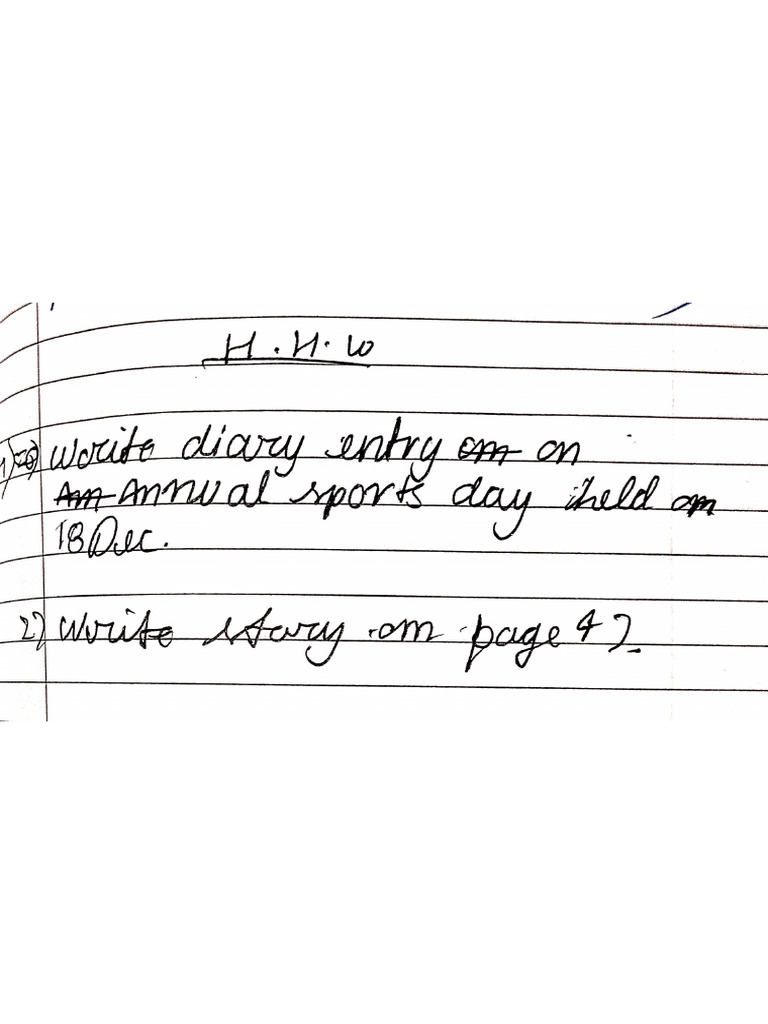 H.H.W
1) Write diary entry on
Annual sports day held on
18 Dec.
2) Write story on page 42